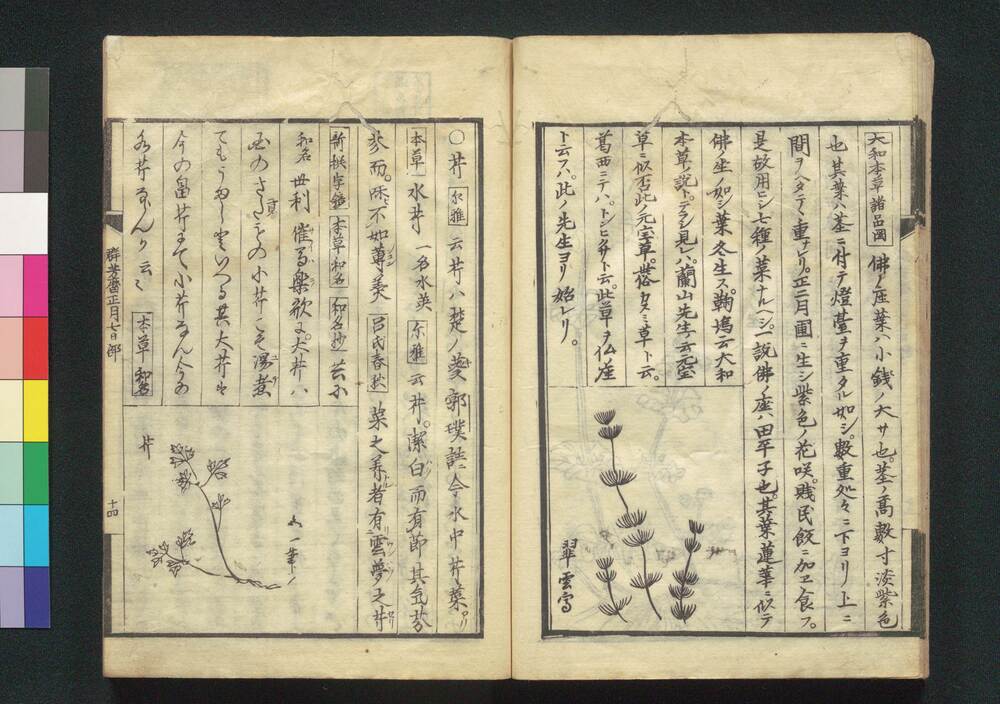 大和本草諸品図 佛ノ座葉ハ小錢ノ大サ也。茎ノ高數寸淡紫色
也其葉ハ茎ニ付テ燈臺ヲ重タル如シ。數重処々ニ下ヨリ上ニ
間ヲヘダテヽ重ナリ。正二月圃ニ生シ紫色ノ花咲。賤民飯ニ加ヱ食フ。
是故用ヒシ七種ノ菜ナルヘシ。一説佛ノ座ハ田平子也。其葉蓮華ニ似テ
佛ノ坐ノ如シ葉冬生ス。鞆塢云大和
本草ノ説ト。テラシ見レハ。蘭山先生ノ云元宝
草ニ似否此ノ元宝草。世俗カスミ草ト云。
葛西ニテハ。トンヒクサト云。此草ヲ仏ノ座
ト云フハ。此ノ先生ヨリ始レリ。
翠雲寫
〇芹 尓雅 云芹ハ楚ノ葵郭璞註今水中芹菜。
本草 水芹 一名水英 尓雅 云芹。潔白而有節其気芬
芳而。味不如蓴羙 呂氏春秋 菜之美者有雲夢之芹
新撰字鏡 本草和名 和名抄
和名世利 催馬樂歌ニ。大芹ハ
国のさたもの小芹こそ湯煮
今の畠芹にて小芹なん今の
水芹ならんか云々 本草和名
芹
其一筆ノ
群芳暦正月七日部
十四